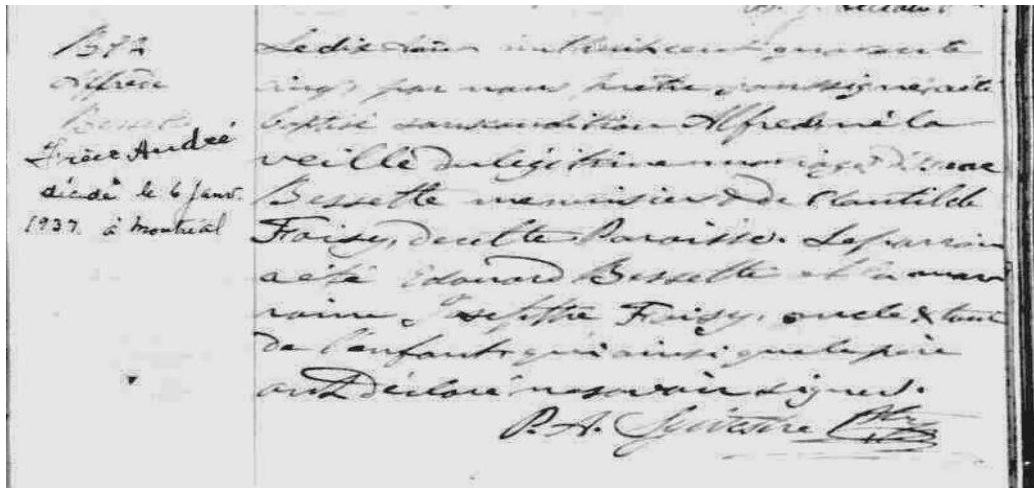 B72
Alfred
Bessette
Frère André
décédé le 6 janv.
1937 à Montréal
Le dix Août mil huit cent quarante
cinq, par nous prêtre soussigné, a été
baptisé sous condition Alfred, né la
veille du légitime mariage d'Isaac
Bessette menuisier & de Clautilde
Foisy, de cette Paroisse. Le parrain
a été Edouard Bessette et la mar
raine Josephte Foisy, oncle & tante
de l'enfant, qui ainsi que le père
ont déclaré ne savoir signer.
P. A. Sylvestre Ptre